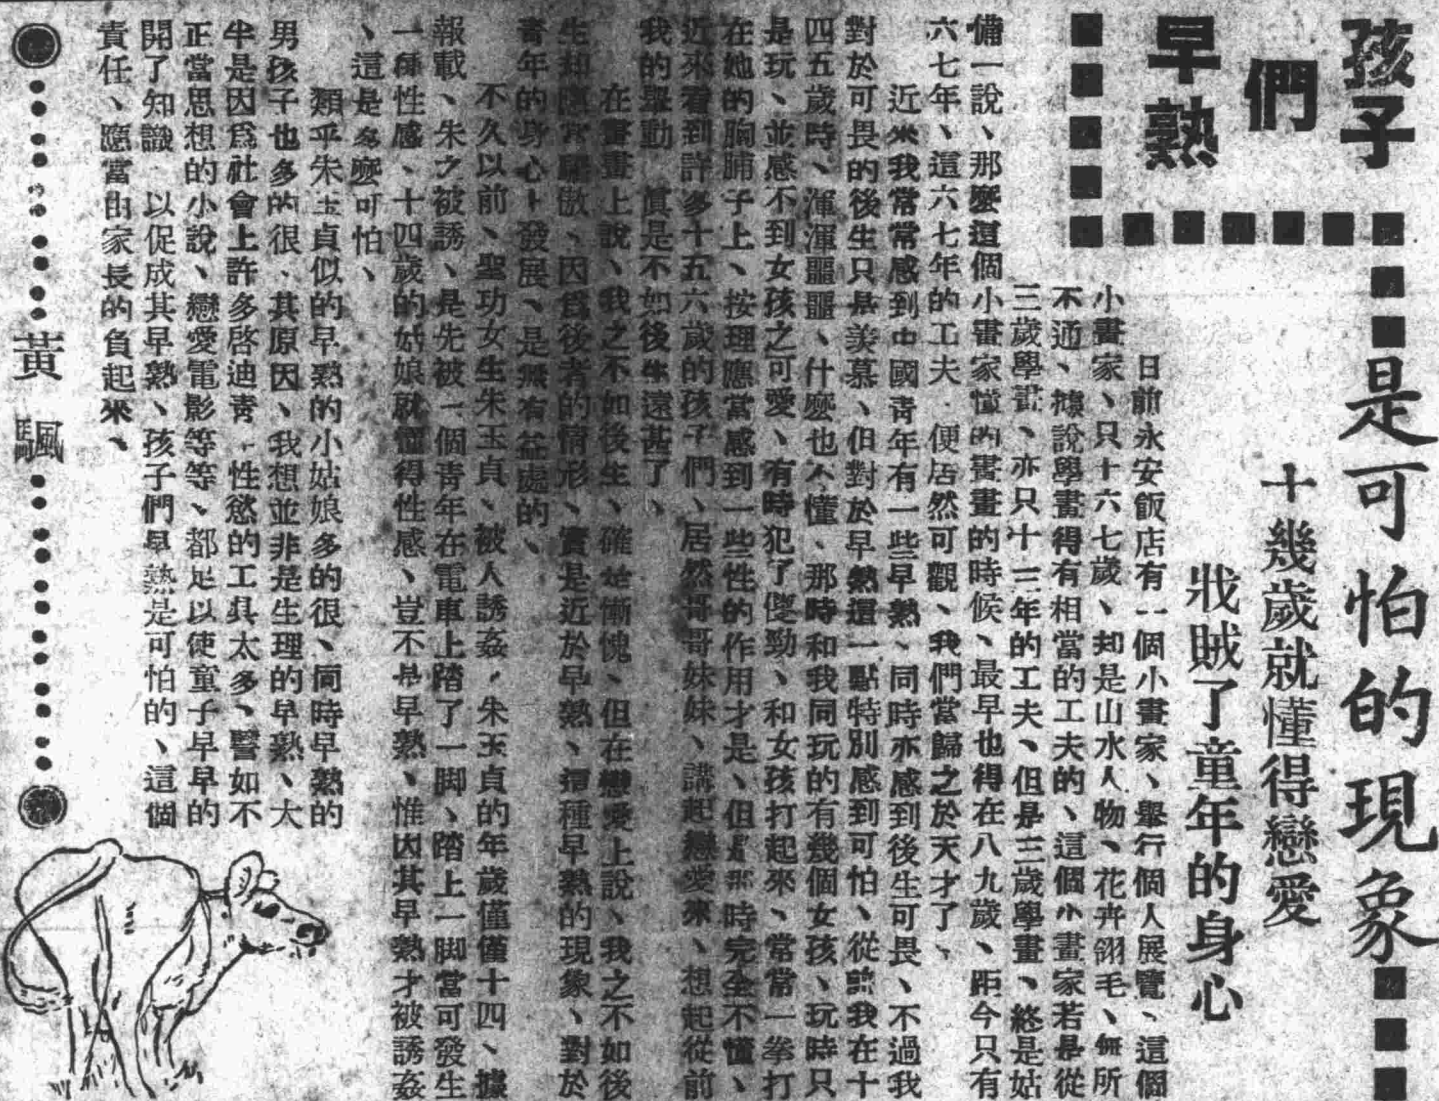 孩子
們
早熟
是可怕的現象
十幾歲就懂得戀愛
戕賊了童年的身心
日前永安飯店有一個小畫家、舉行個人展覽、這個
小畫家、只十六七歲、却是山水人物、花卉翎毛、無所
不通、據說學畫得有相當的工夫的、這個小畫家若是從
三歲學畫、亦只十三年的工夫、但是三歲學畫、終是姑
備一說、那麼這個小畫家懂的書畫的時候、最早也得在八九歲、距今只有
六七年、這六七年的工夫、便居然可觀、我們當歸之於天才了、
近來我常常感到中國青年有一些早熟、同時亦感到後生可畏、不過我
對於可畏的後生只是羨慕、但對於早熟這一點特別感到可怕、從我在十
四五歲時、渾渾噩噩、什麼也不懂、那時和我同玩的有幾個女孩、玩時只
是玩、並感不到女孩之可愛、有時犯了儍勁、和女孩打起來、常常一拳打
在她的胸脯子上、按理應當感到一些性的作用才是、但是那時完全不懂、
近來看到許多十五六歲的孩子們、居然哥哥妹妹、講起戀愛來、想起從前
我的舉動、眞是不如後生遠甚了、
在書畫上說、我之不如後生、確是慚愧、但在戀愛上說、我之不如後
生却應當驕傲、因爲後者的情形、實是近於早熟、這種早熟的現象、對於
靑年的身心上發展、是無有益處的、
不久以前、聖功女生朱玉貞、被人誘姦，朱玉貞的年歲僅僅十四、據
報載、朱之被誘、是先被一個靑年在電車上踏了一脚、踏上一脚當可發生
一種性感、十四歲的姑娘就懂得性感、豈不是早熟、惟因其早熟才被誘姦
、這是多麼可怕、
類乎朱玉貞似的早熟的小姑娘多的很、同時早熟的
男孩子也多的很、其原因、我想並非是生理的早熟、大
半是因爲社會上許多啓迪靑年性慾的工具太多、譬如不
正當思想的小說、戀愛電影等等、都足以使童子早早的
開了知識、以促成其早熟、孩子們早熟是可怕的、這個
責任、應當由家長的負起來、
黃颿